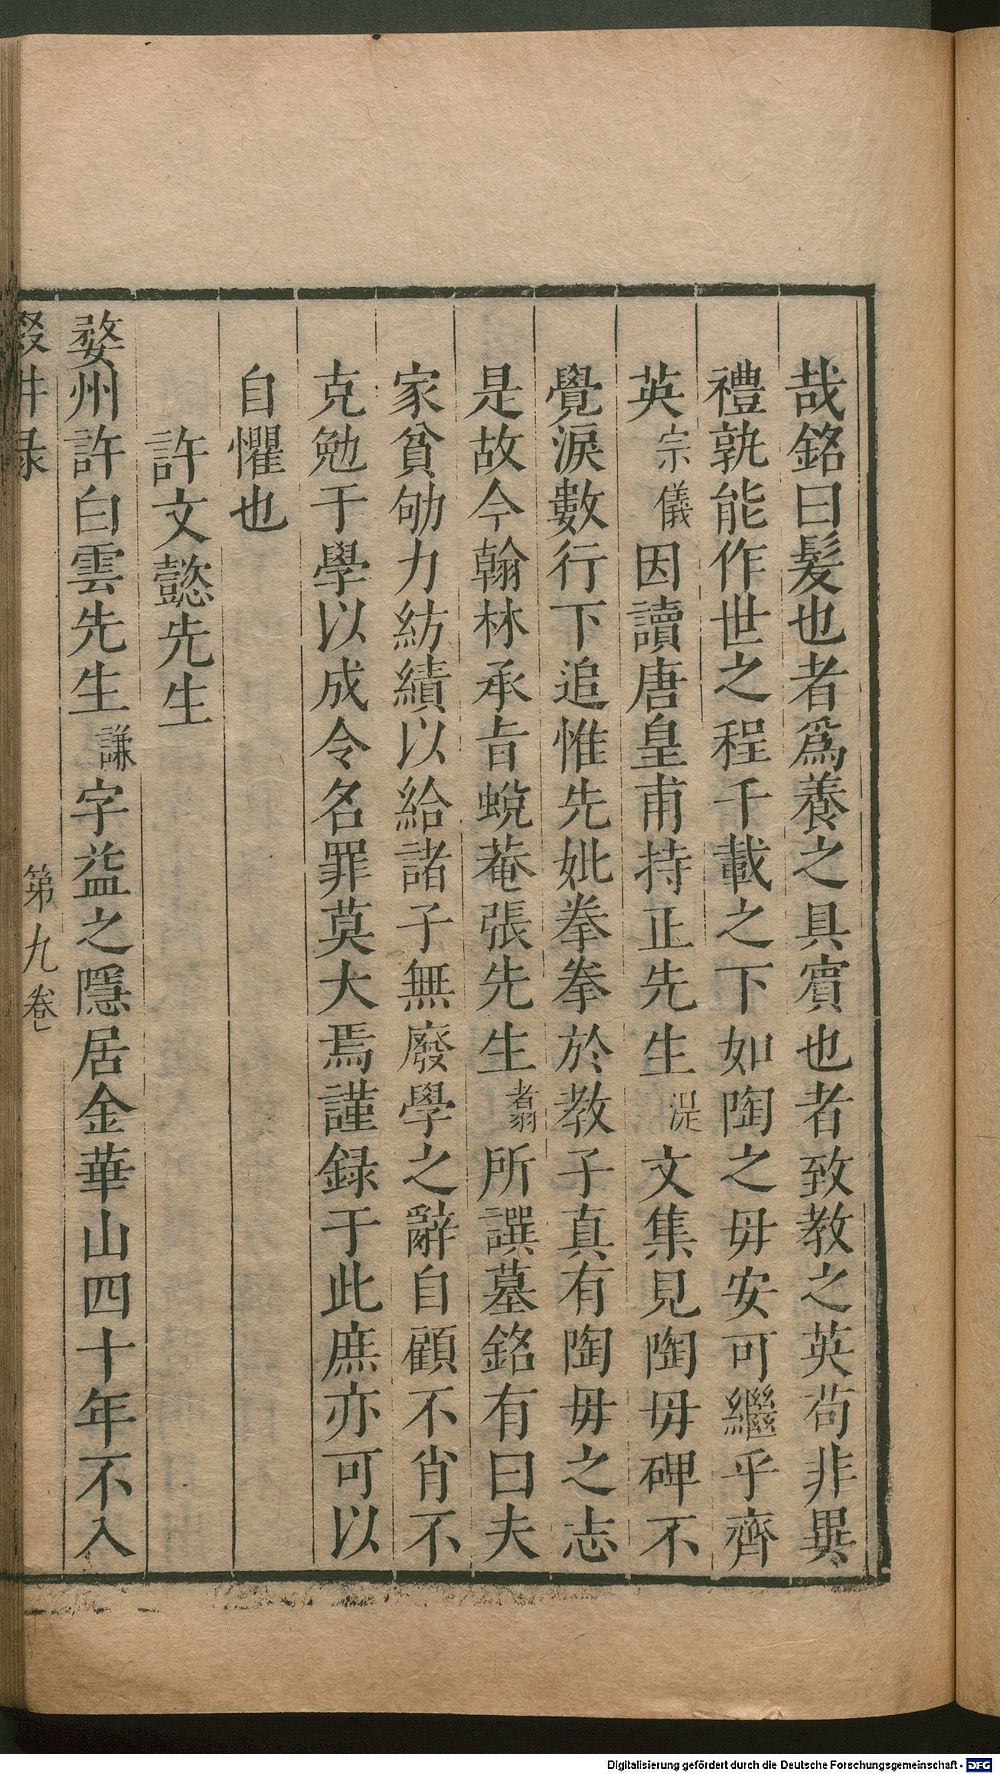 哉銘曰髮也者爲養之具賓也者致教之英茍非異
禮孰能作世之程千載之下如陶之毋安可繼乎齊
英宗儀因讀唐皇甫持正先生湜文集見陶毋碑不
覺淚數行下追惟先妣拳拳於教子真有陶毋之志
是故今翰林承旨蛻菴張先生翥所譔墓銘有曰夫
家貧劬力紡績以給諸子無廢學之辭自顧不肖不
克勉于學以成令名罪莫大焉謹録于此庶亦可以
自懼也
許文懿先生
婺州許白雲先生謙字益之隱居金華山四十年不入
輟畊录
第九卷
Digitalisierung gefördert durch die Deutsche Forschungsgemeinschaft - DFG